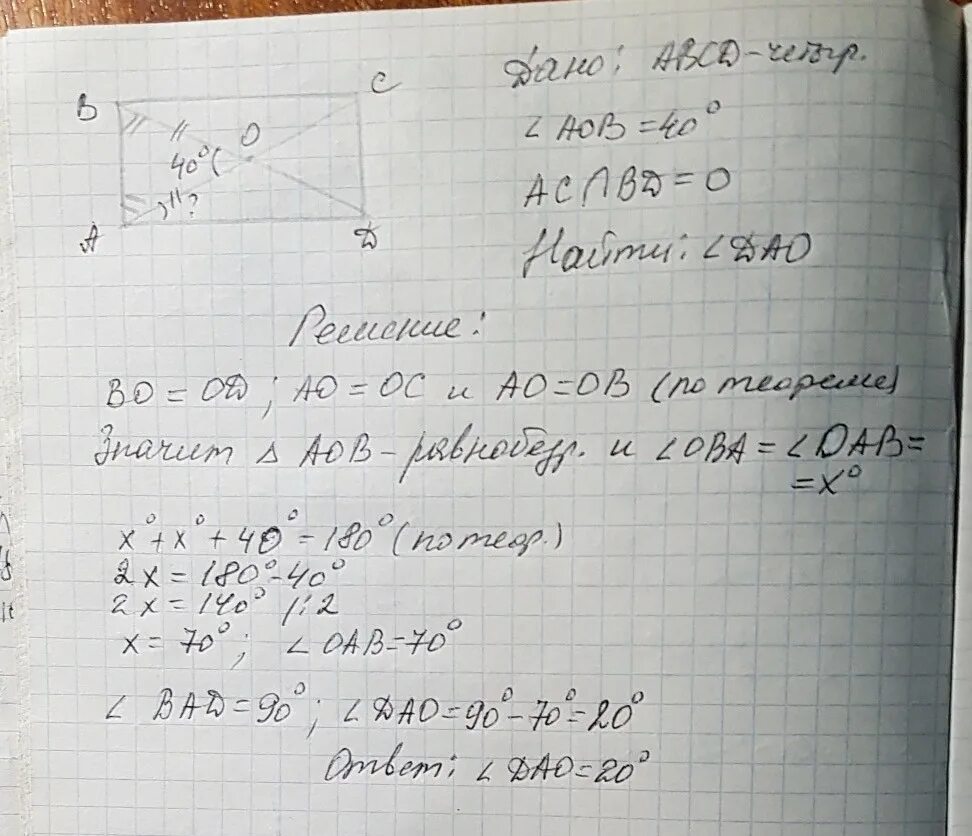 B
C
O
40°
?
A
D
Дано: ABCD-четыр.
∠AOB=40°
AC∩BD=O
Найти: ∠DAO
Решение:
BO=OD; AO=OC и AO=OB (по теореме)
Значит △ AOB-равнобедр. и ∠OBA=∠OAB=
=x°
x°+x°+40°=180° (по теор.)
2x=180°-40°
2x=140° /:2
x=70°; ∠OAB=70°
∠BAD=90°; ∠DAO=90°-70°=20°
Ответ: ∠DAO=20°